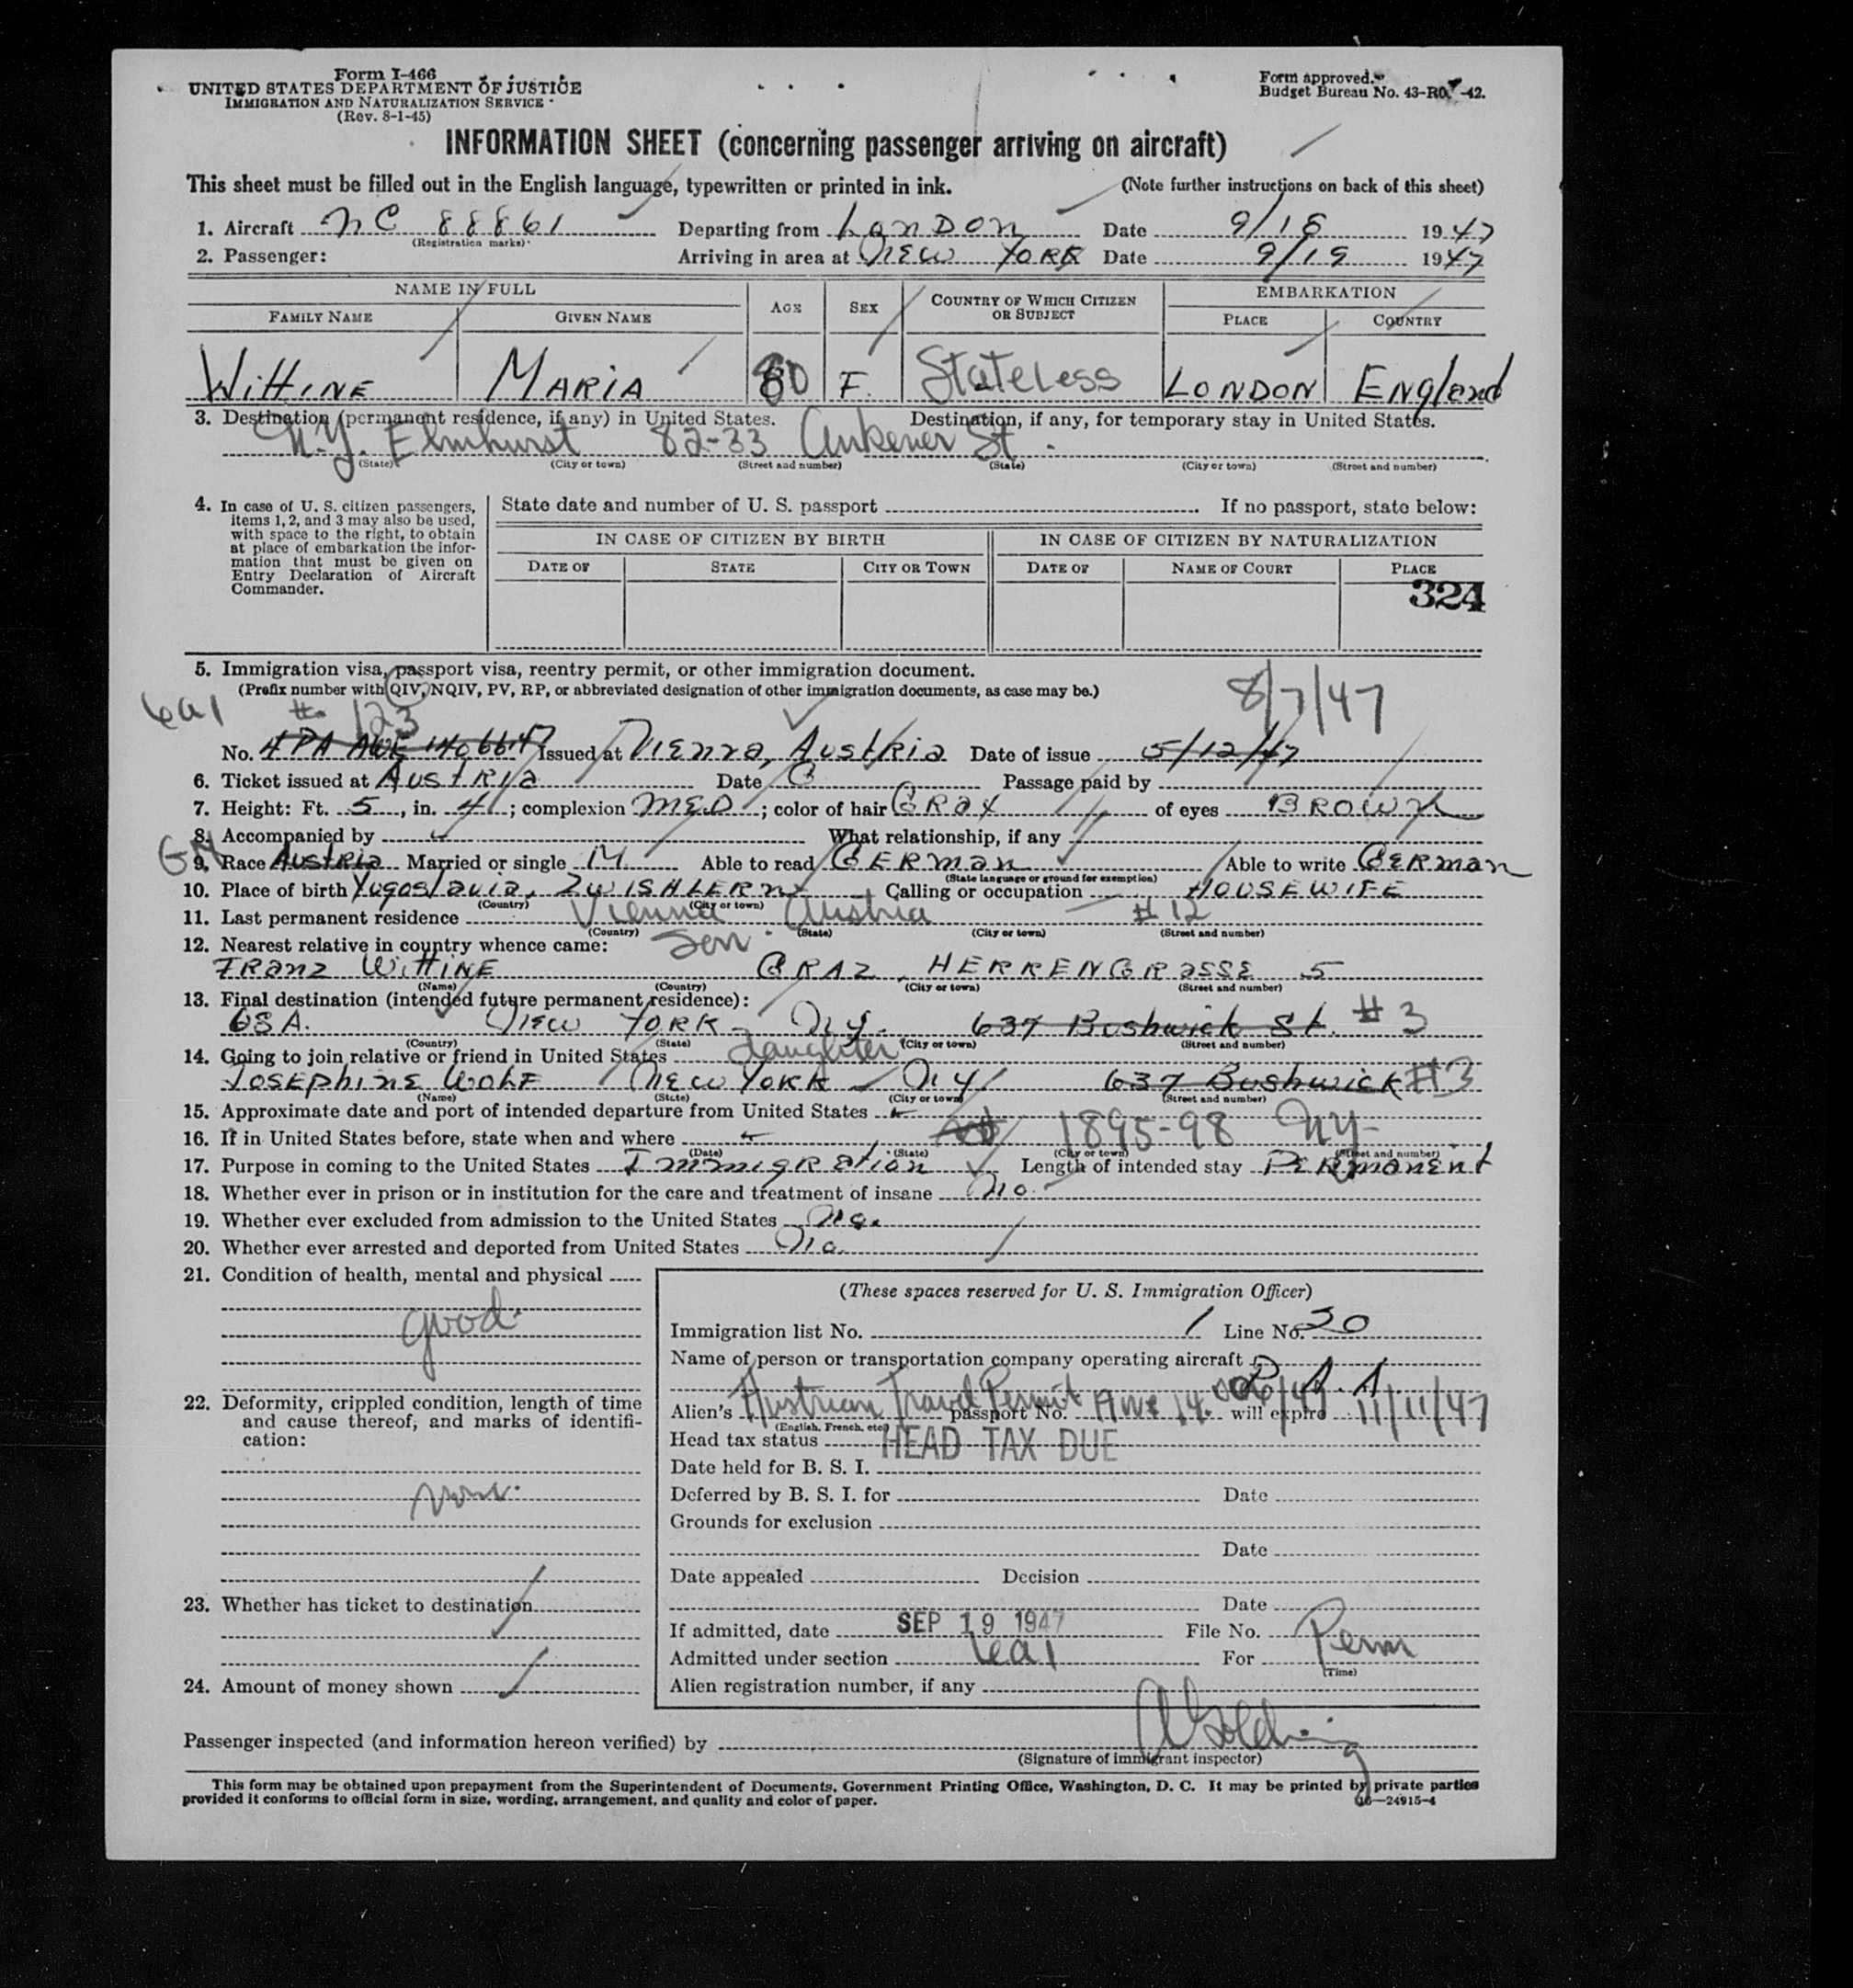 Form I-466
UNITED STATES DEPARTMENT OF JUSTICE
IMMIGRATION AND NATURALIZATION SERVICE
(Rev. 8-1-45)
Form approved.
Budget Bureau No. 43-R0 -42.
INFORMATION SHEET (concerning passenger arriving on aircraft)
This sheet must be filled out in the English language, typewritten or printed in ink. (Note further instructions on back of this sheet)
1. Aircraft NC 88861 Departing from LONDON Date 9/18 1947
(Registration marks)
2. Passenger: Arriving in area at NEW YORK Date 9/19 1947
NAME IN FULL AGE SEX COUNTRY OF WHICH CITIZEN OR SUBJECT EMBARKATION
FAMILY NAME GIVEN NAME PLACE COUNTRY
WITTINE MARIA 80 F. Stateless LONDON England
3. Destination (permanent residence, if any) in United States. Destination, if any, for temporary stay in United States.
N.Y. Elmhurst 82-33 Ankener St.
(State) (City or town) (Street and number) (State) (City or town) (Street and number)
4. In case of U. S. citizen passengers, items 1, 2, and 3 may also be used, with space to the right, to obtain at place of embarkation the information that must be given on Entry Declaration of Aircraft Commander.
State date and number of U. S. passport If no passport, state below:
IN CASE OF CITIZEN BY BIRTH IN CASE OF CITIZEN BY NATURALIZATION
DATE OF STATE CITY OR TOWN DATE OF NAME OF COURT PLACE
324
5. Immigration visa, passport visa, reentry permit, or other immigration document.
(Prefix number with QIV, NQIV, PV, RP, or abbreviated designation of other immigration documents, as case may be.)
8/7/47
6a1 # 123
No. Issued at Vienna, Austria Date of issue 5/12/47
6. Ticket issued at Austria Date Passage paid by
7. Height: Ft. 5, in. 4; complexion MED; color of hair GRAY of eyes BROWN
8. Accompanied by What relationship, if any
GM
9. Race Austria Married or single M Able to read GERman Able to write GERman
(State language or ground for exemption)
10. Place of birth Yugoslavia, ZWISHLERN Calling or occupation HOUSEWIFE
(Country) (City or town)
11. Last permanent residence Vienna Austria #12
(Country) (State) (City or town) (Street and number)
12. Nearest relative in country whence came: Son
FRanz WITTINE GRAZ, HERRENGRASSE 5
(Name) (Country) (City or town) (Street and number)
13. Final destination (intended future permanent residence):
USA. NEW YORK - N.Y. 637 Bushwick St. #3
(Country) (State) (City or town) (Street and number)
14. Going to join relative or friend in United States daughter
JOSEPHINE WOLF NEW YORK N Y 637 Bushwick #3
(Name) (State) (City or town) (Street and number)
15. Approximate date and port of intended departure from United States
16. If in United States before, state when and where 1895-98 NY-
(Date) (State) (City or town) (Street and number)
17. Purpose in coming to the United States Immigration Length of intended stay PERmanent
18. Whether ever in prison or in institution for the care and treatment of insane No.
19. Whether ever excluded from admission to the United States No.
20. Whether ever arrested and deported from United States No.
21. Condition of health, mental and physical
good
22. Deformity, crippled condition, length of time and cause thereof, and marks of identification:
none
23. Whether has ticket to destination
24. Amount of money shown
(These spaces reserved for U. S. Immigration Officer)
Immigration list No. 1 Line No. 20
Name of person or transportation company operating aircraft
P. A. A.
Alien's Austrian Travel Permit passport No. will expire 11/11/47
(English, French, etc)
Head tax status HEAD TAX DUE
Date held for B. S. I.
Deferred by B. S. I. for Date
Grounds for exclusion
Date
Date appealed Decision
Date
If admitted, date SEP 19 1947 File No.
Admitted under section 6a1 For Perm
(Time)
Alien registration number, if any
Passenger inspected (and information hereon verified) by
(Signature of immigrant inspector)
This form may be obtained upon prepayment from the Superintendent of Documents, Government Printing Office, Washington, D. C. It may be printed by private parties
provided it conforms to official form in size, wording, arrangement, and quality and color of paper. 16—24915-4